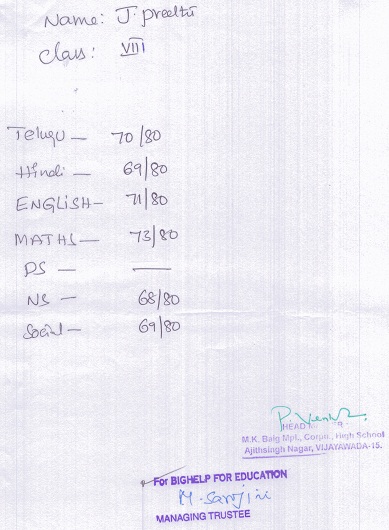 Name: J. preethi
Class: VIII
Telugu — 70/80
Hindi — 69/80
ENGLISH — 71/80
MATHS — 73/80
PS — —
NS — 68/80
Social — 69/80
HEAD
M.K. Baig Mpl., Corpn., High School
Ajithsingh Nagar, VIJAYAWADA-15.
For BIGHELP FOR EDUCATION
M. Sarojini
MANAGING TRUSTEE